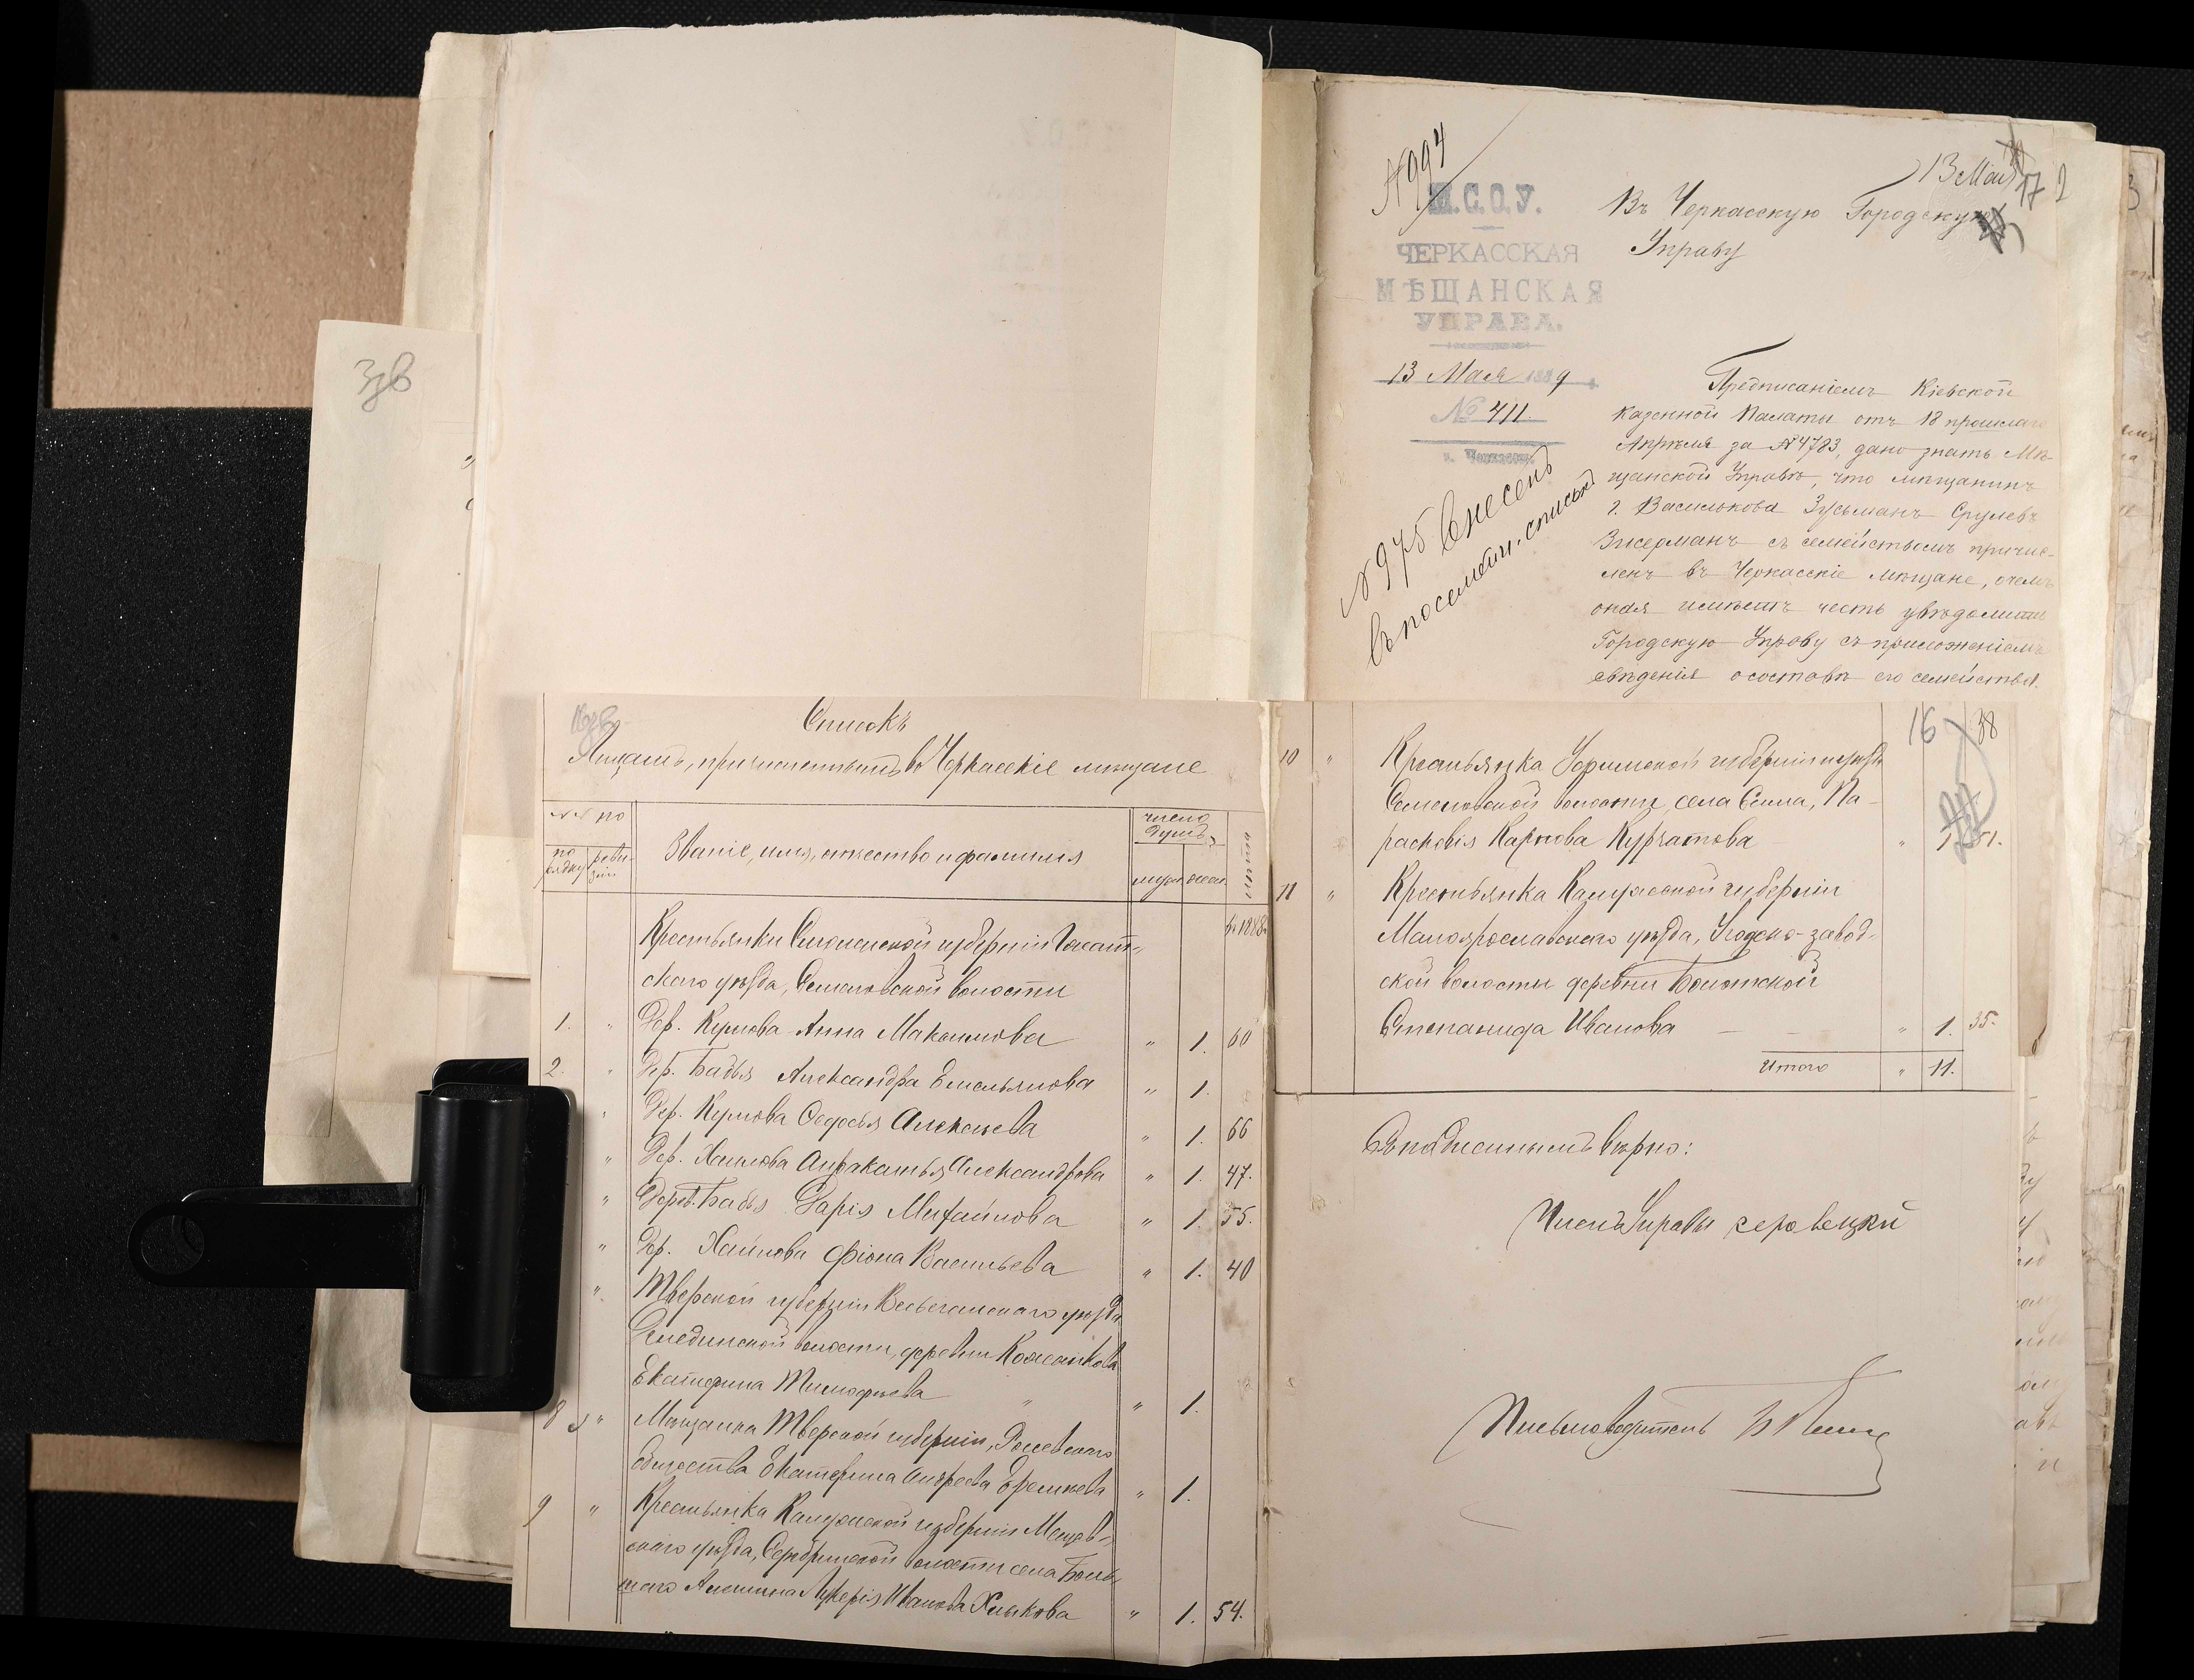 Списокъ
Лицамъ, причисленнымъ въ Черкасскіе мѣщане
№№ по
по рядку
реви-зіи
Званіе, имя, отчество и фамилія
число душъ
муж.
жен.
лѣта
въ 1888
Крестьянки Смоленской губерніи Гжат-
скаго уѣзда, Семеновской волости
1. " Дер. Курмова Анна Максимова " 1. 60
2. " Дер. Бабья Александра Емельянова " 1.
" Дер. Курмова Федосья Алексѣева " 1. 66
" Дер. Александрова " 1. 47.
" Дерев. Бабья Дарія Михайлова " 1. 55.
" Дер. Васильева " 1. 40
" Тверской губерніи Весьегонскаго уѣзда
волости, деревни
Екатерина Тимофѣева " 1.
8 " Мѣщанка Тверской губерніи, Ржевскаго
Общества Екатерина Андреева " 1.
9 " Крестьянка Калужской губерніи Мещов-
скаго уѣзда, Серебринской волости села Боль-
шого Алешина Лукерія Иванова " 1. 54.
16 38
10 " Крестьянка Уфимской губерніи и уѣзда
волости, села Сима, Па-
расковія Карпова Курчатова " 1. 51.
11 " Крестьянка Калужской губерніи
Малоярославскаго уѣзда, Угодско-завод-
ской волости деревни Болотской
Степанида Иванова " 1. 35.
Итого " 11.
Съ подлиннымъ вѣрно:
Членъ Управы
Письмоводитель
№ 994
13 Мая
17
2
М.С.О.У.
ЧЕРКАССКАЯ
МѢЩАНСКАЯ
УПРАВА.
13 Мая 1889
№ 411.
г. Черкассы.
№ 975 Внесенъ
въ посемейн. списокъ
Въ Черкасскую Городскую
Управу
Предписаніемъ Кіевской
Казенной Палаты отъ 18 прошлаго
Апрѣля за № 4783, дано знать Мѣ-
щанской Управѣ, что мѣщанинъ
г. Василькова Зусьманъ Срулевъ
Зисерманъ съ семействомъ причис-
ленъ въ Черкасскіе мѣщане, о чемъ
оная имѣетъ честь увѣдомить
Городскую Управу съ приложеніемъ
свѣденія о составѣ его семейства.